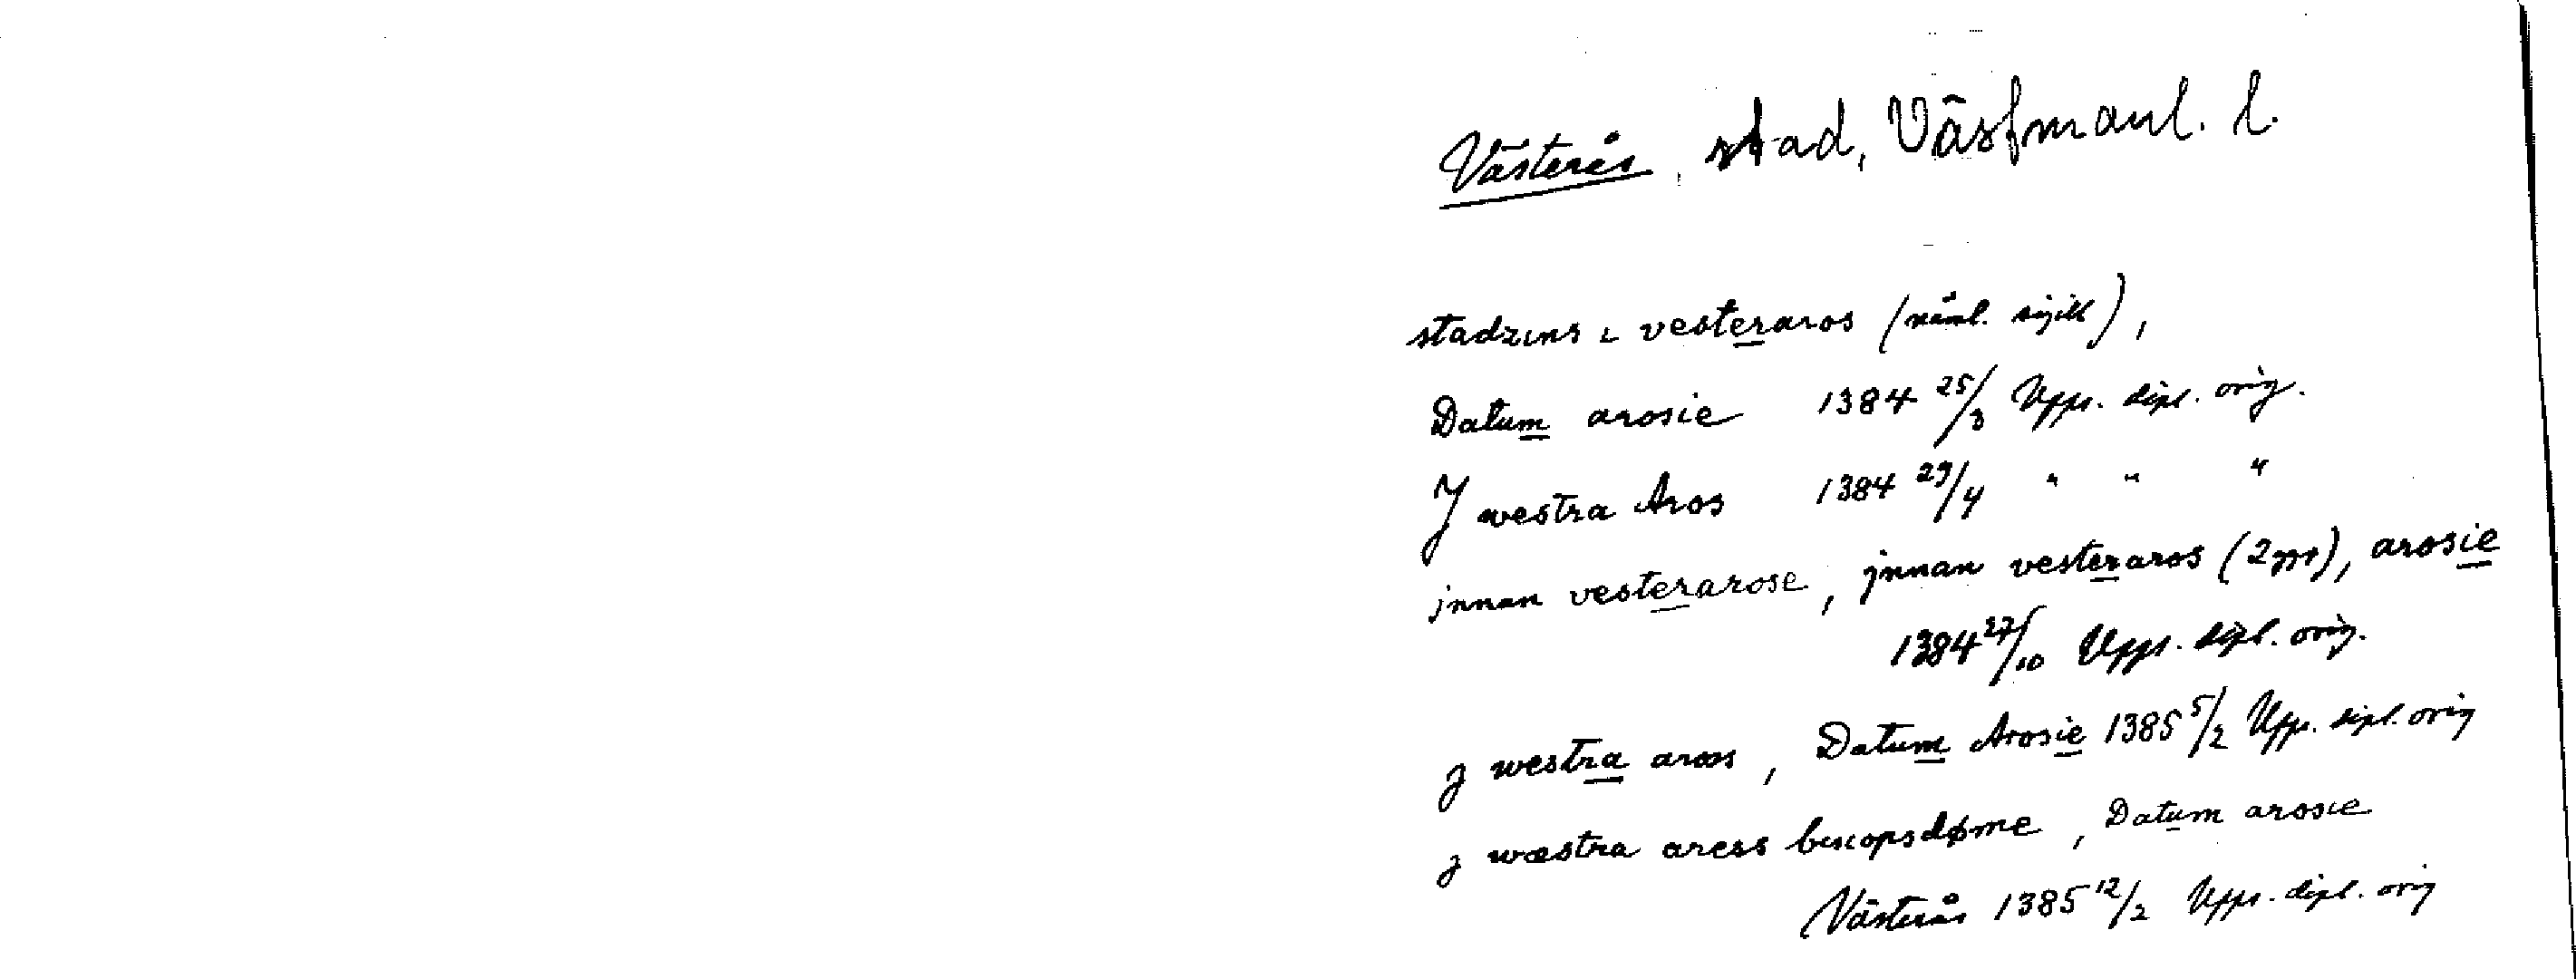 Västerås, stad, Västmanl. l.
stadzins i vesteraros (nåml. sigill),
Datum arosie 1384 25/3 Upps. dipl. orig.
J westra Aros 1384 29/4 " " "
jnnan vesterarose, jnnan vesteraros (2 ggr), arosie
1384 27/10 Upps. dipl. orig.
J westra aroos, Datum Arosie 1385 5/2 Upps. dipl. orig
J wæstra aress biscopsdøme, Datum arosie
Västerås 1385 12/2 Upps. dipl. orig